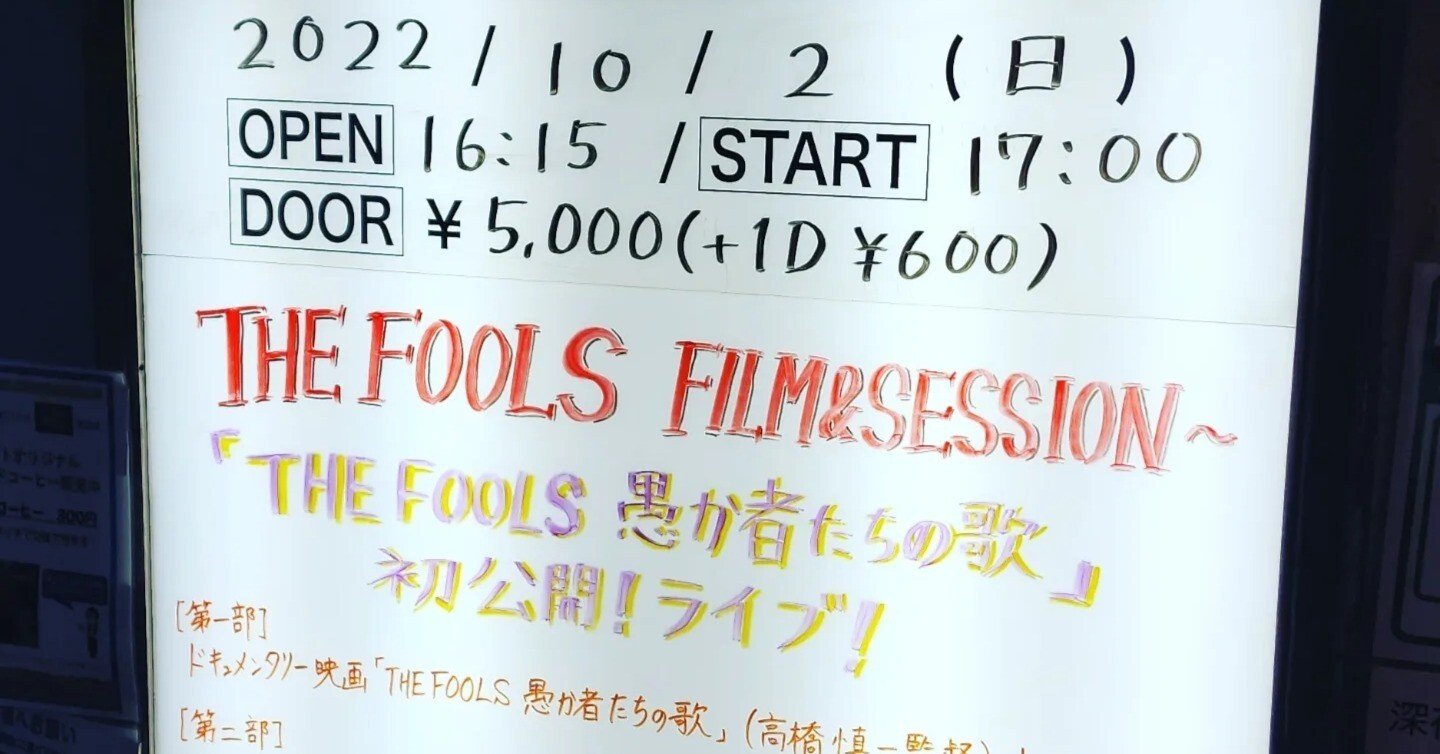 2022 / 10 / 2 (日)
OPEN 16:15 / START 17:00
DOOR ¥5,000(+1D ¥600)
THE FOOLS FILM&SESSION～
「THE FOOLS 愚か者たちの歌」
初公開!ライブ!
[第一部]
ドキュメンタリー映画「THE FOOLS 愚か者たちの歌」(高橋慎一監督)
[第二部]